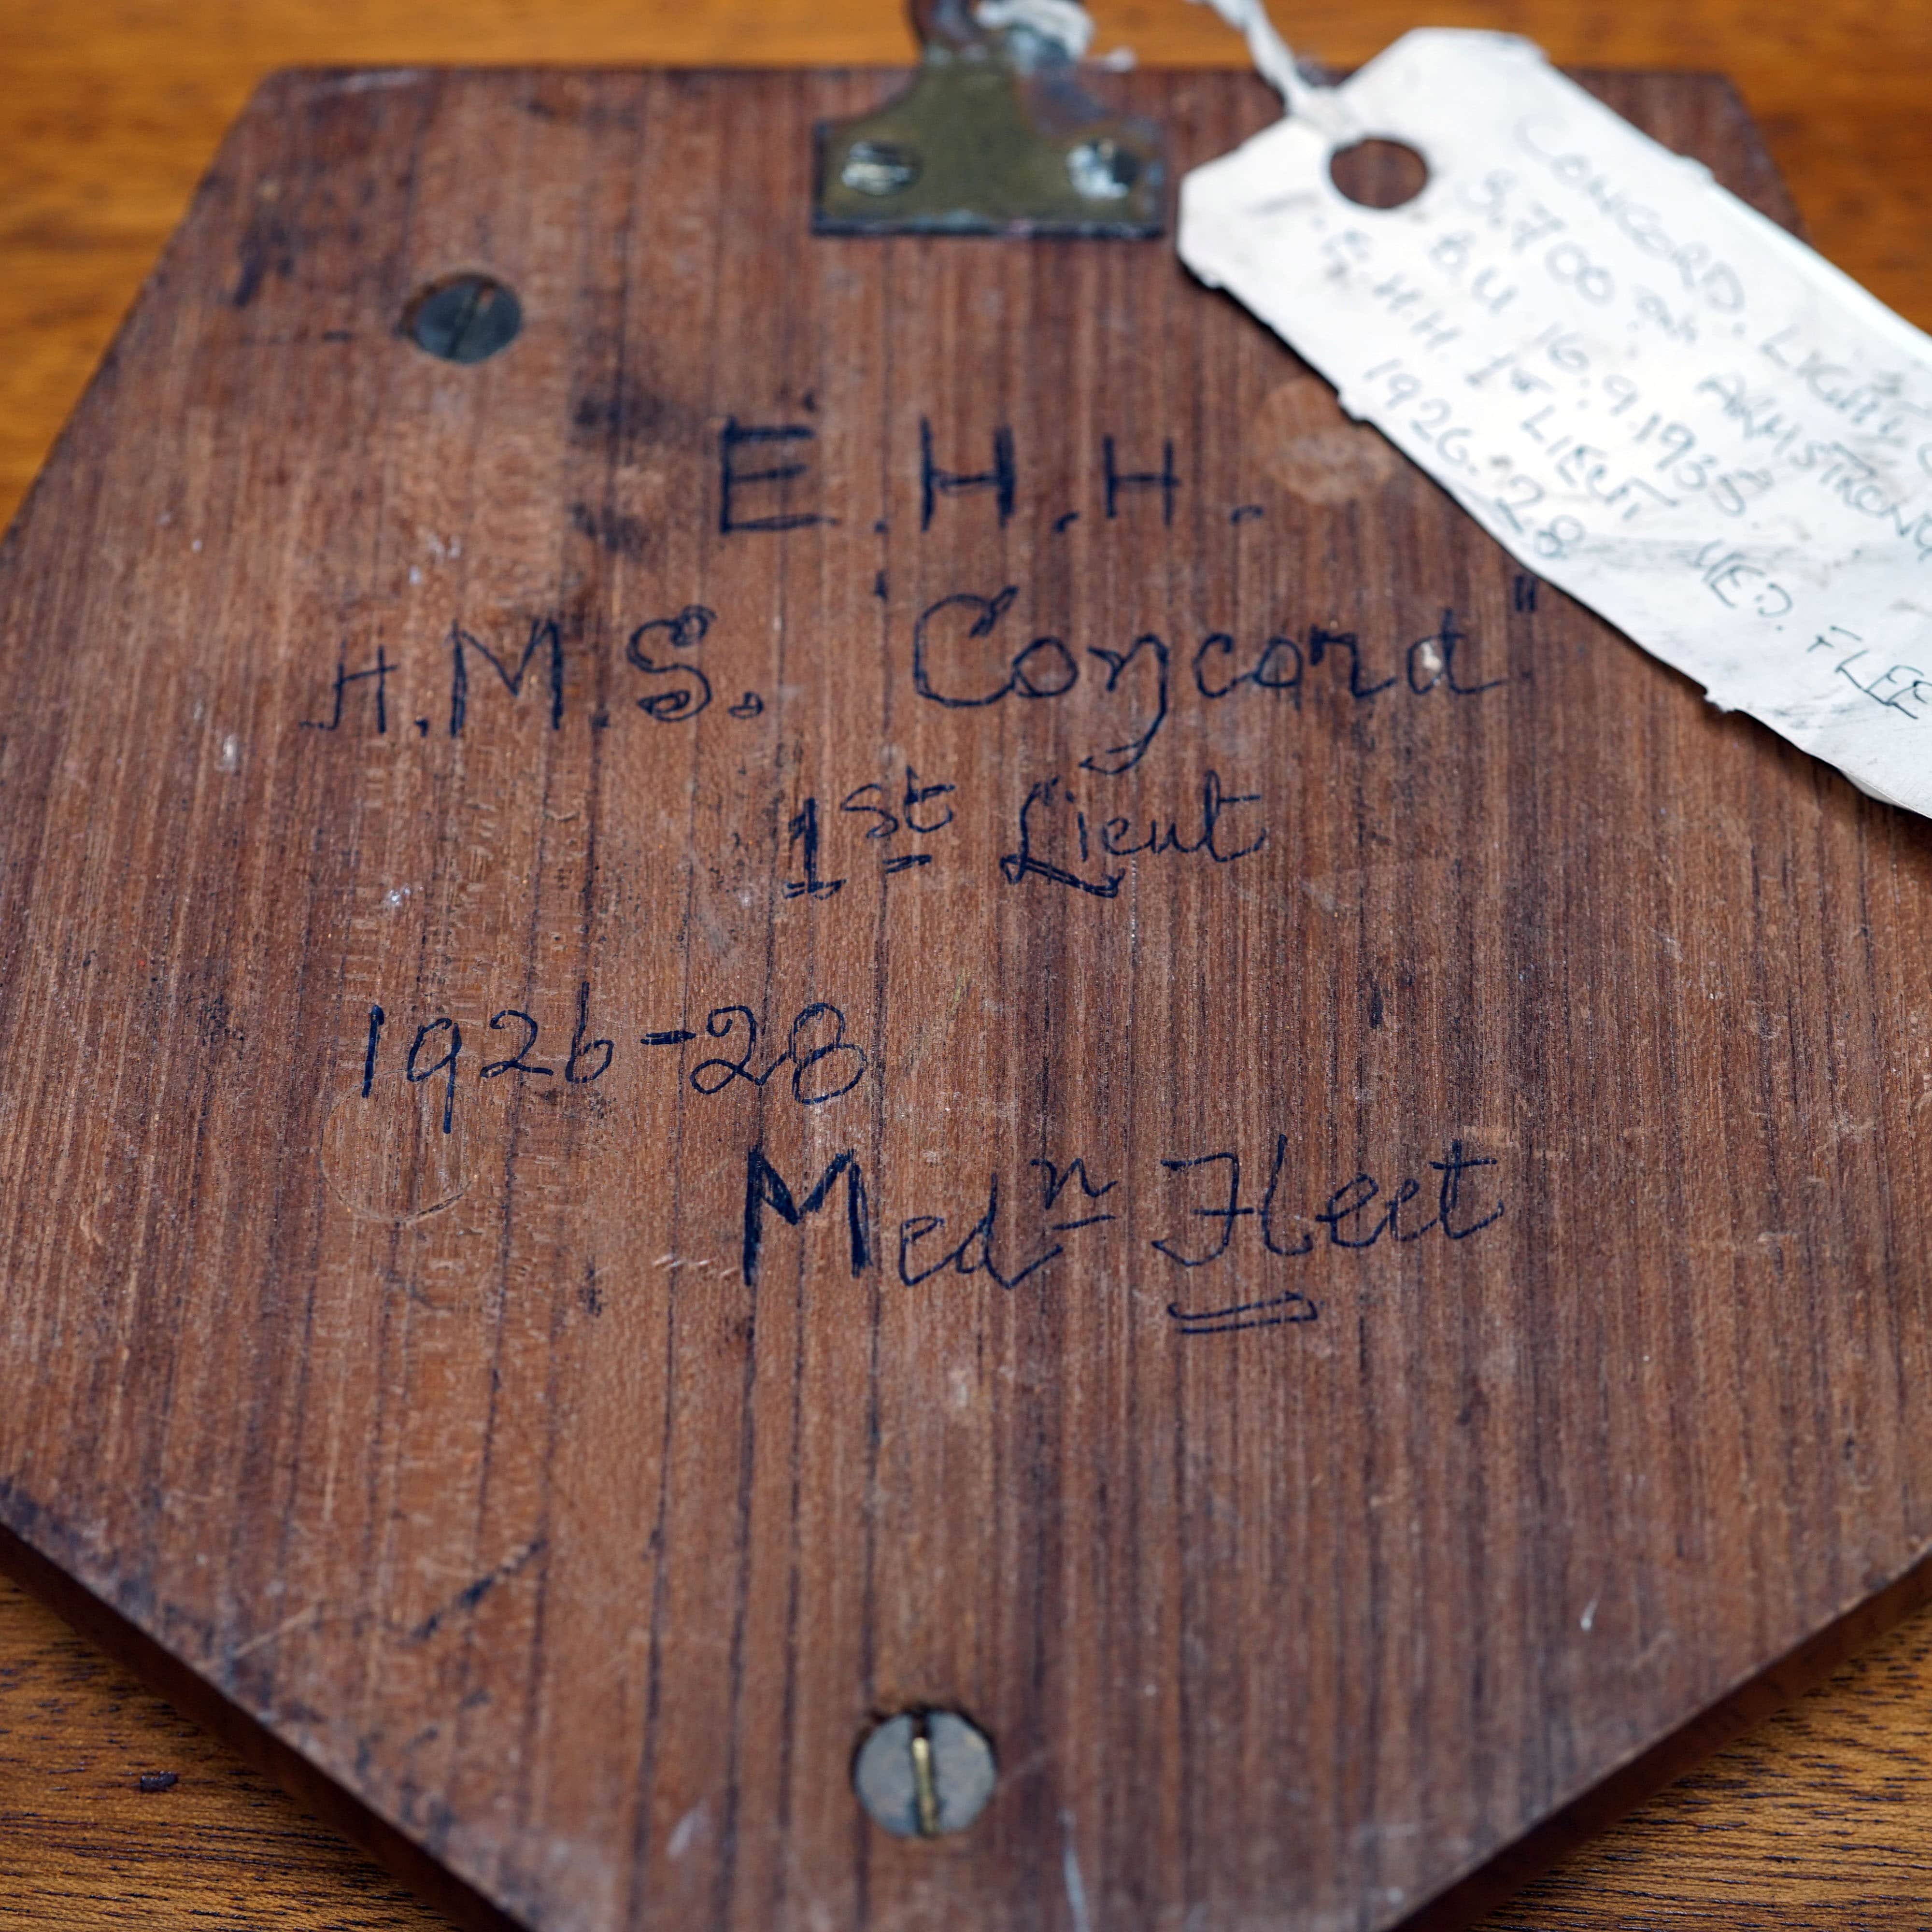 E.H.H.
H.M.S. "Concord"
1st Lieut
1926-28
Medn Fleet
CONCORD. LIGHT
ARMSTRONG
B.U 16.9.1935.
E.H.H. 1st LIEUT MED. FLEE
1926.28